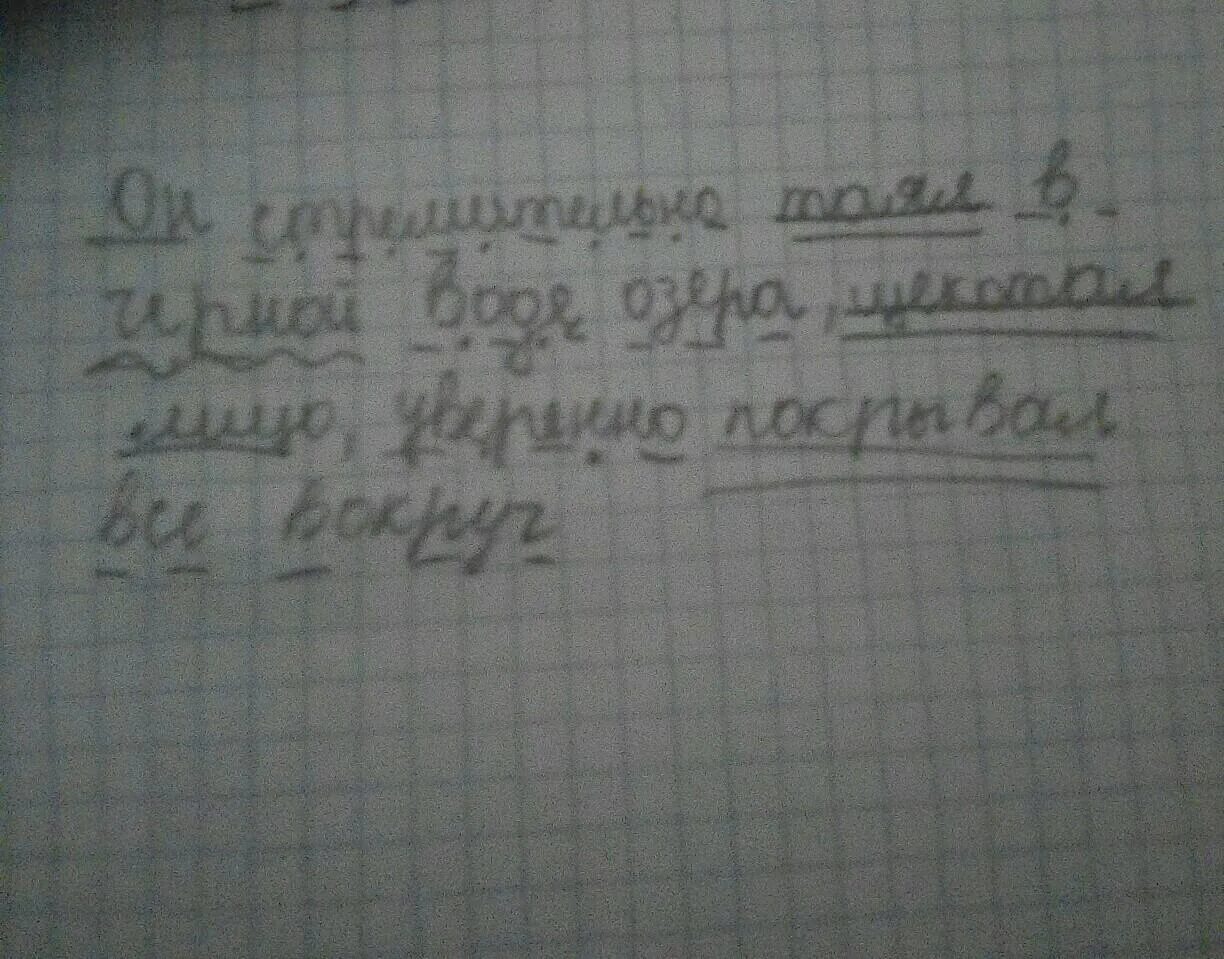 Он стремительно таял в
чёрной воде озера, щекотал
лицо, уверенно покрывал
все вокруг